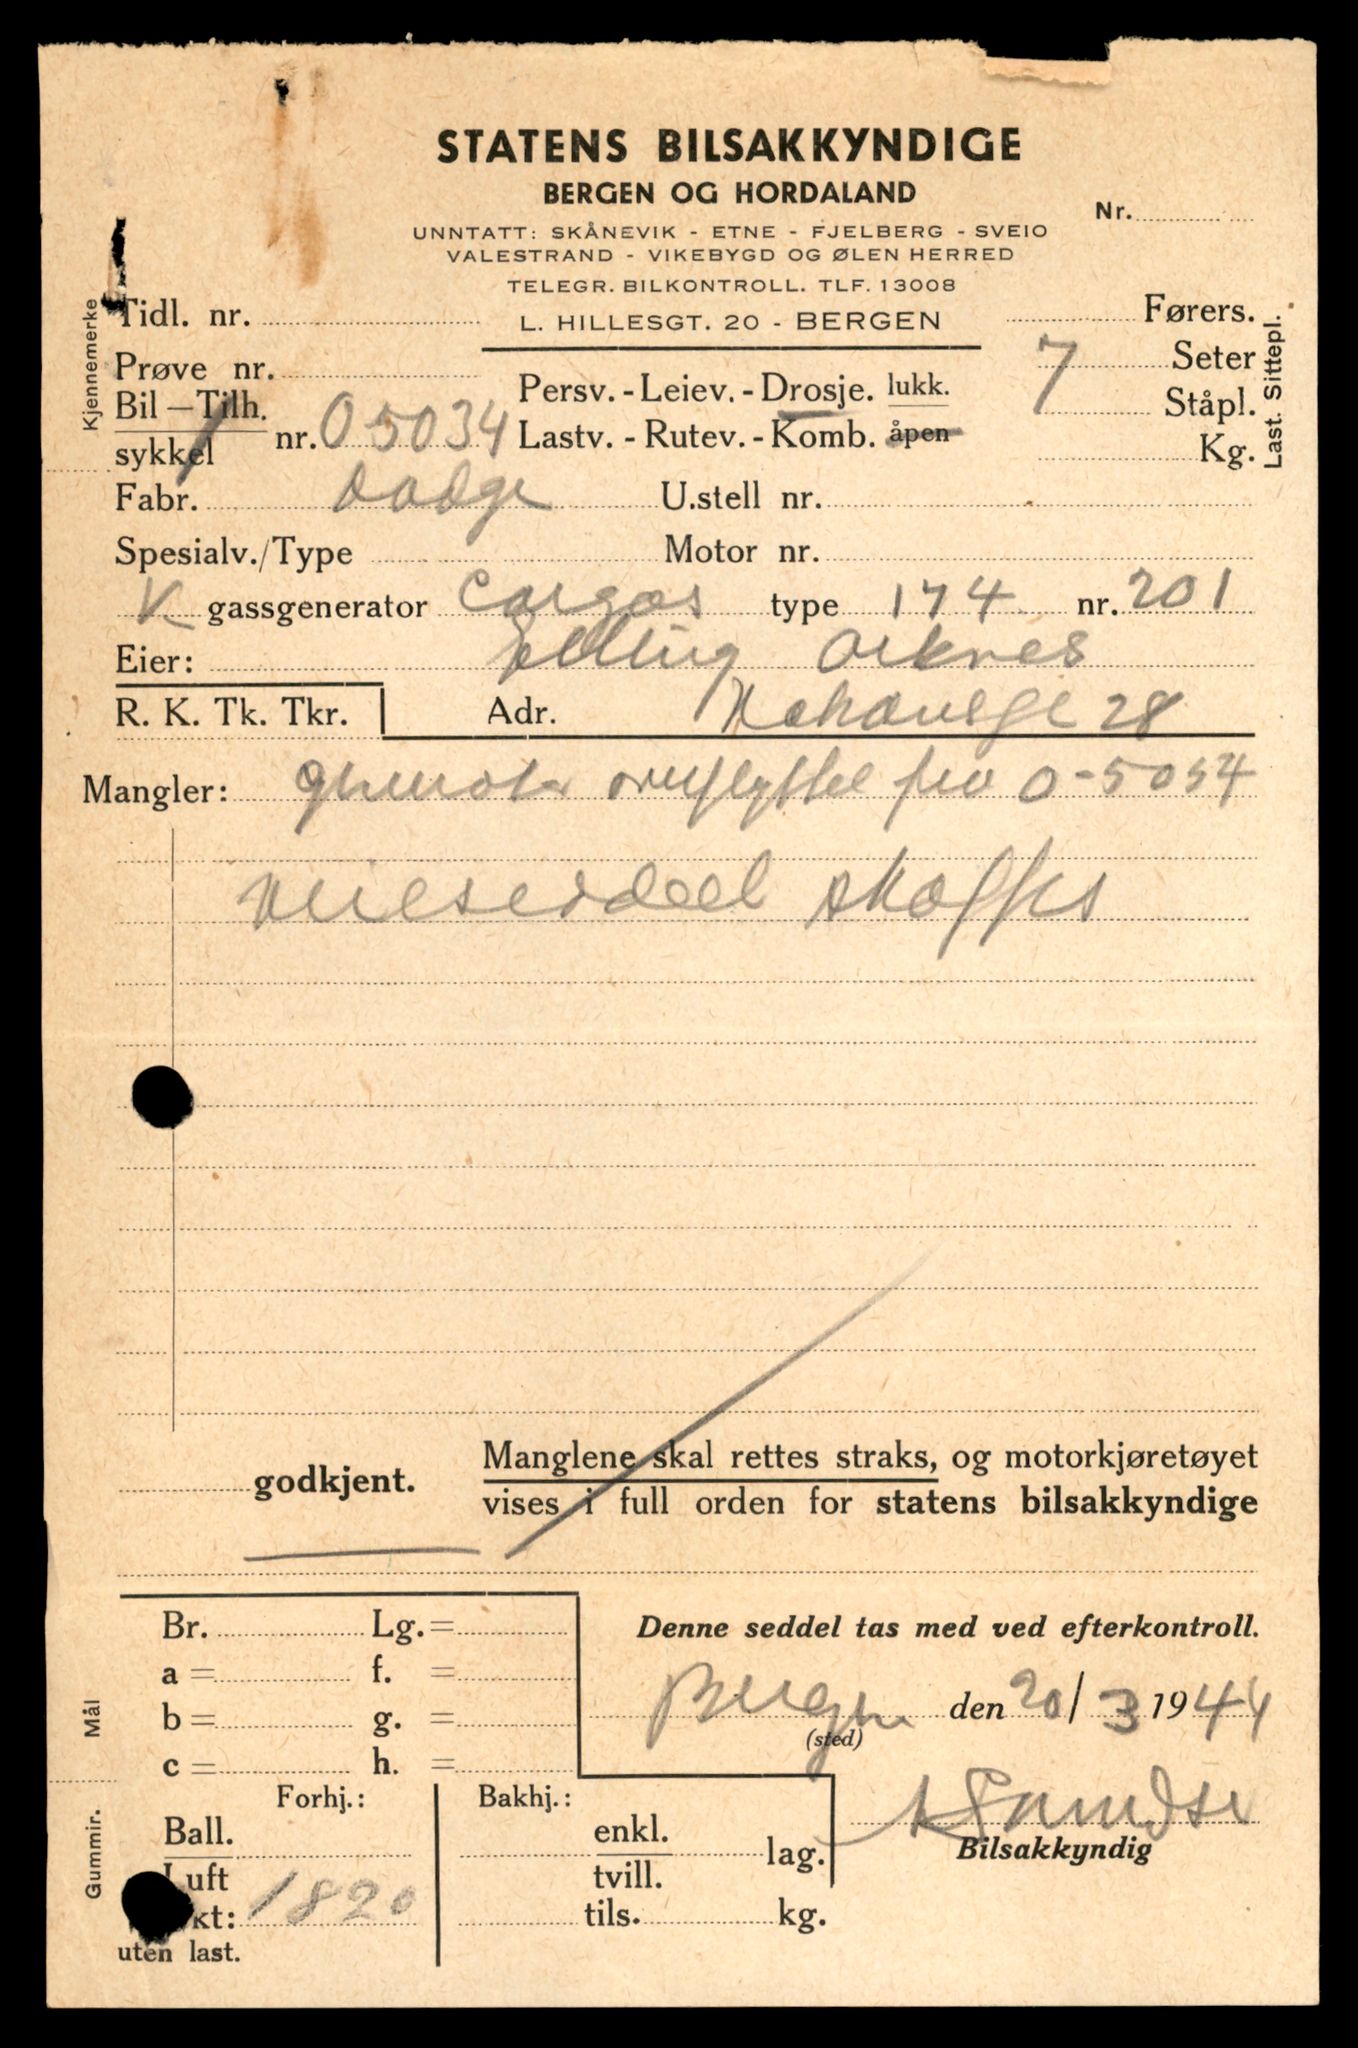 STATENS BILSAKKYNDIGE
BERGEN OG HORDALAND
Nr.
UNNTATT: SKÅNEVIK - ETNE - FJELBERG - SVEIO
VALESTRAND - VIKEBYGD OG ØLEN HERRED
TELEGR. BILKONTROLL. TLF. 13008
L. HILLESGT. 20 - BERGEN
Kjennemerke
Tidl. nr.
Prøve nr.
Bil - Tilh.
sykkel nr. O 5034
Persv. - Leiev. - Drosje. lukk.
Lastv. - Rutev. - Komb. åpen
Førers.
7 Seter
Ståpl.
Kg.
Last. Sittepl.
Fabr. Dodge U.stell nr.
Spesialv./Type Motor nr.
K gassgenerator type 174 nr. 201
Eier: Elling
R. K. Tk. Tkr. Adr. 28
Mangler: overflyttet fra O-5034
skaffes
godkjent. Manglene skal rettes straks, og motorkjøretøyet
vises i full orden for statens bilsakkyndige
Mål
Br. Lg. =
a = f. =
b = g. =
c = h. =
Denne seddel tas med ved efterkontroll.
Bergen den 20/3 1944
(sted)
Bilsakkyndig
Gummir.
Forhj.: Bakhj.:
Ball. enkl.
Luft tvill. lag.
kt: 1820 tils. kg.
uten last.